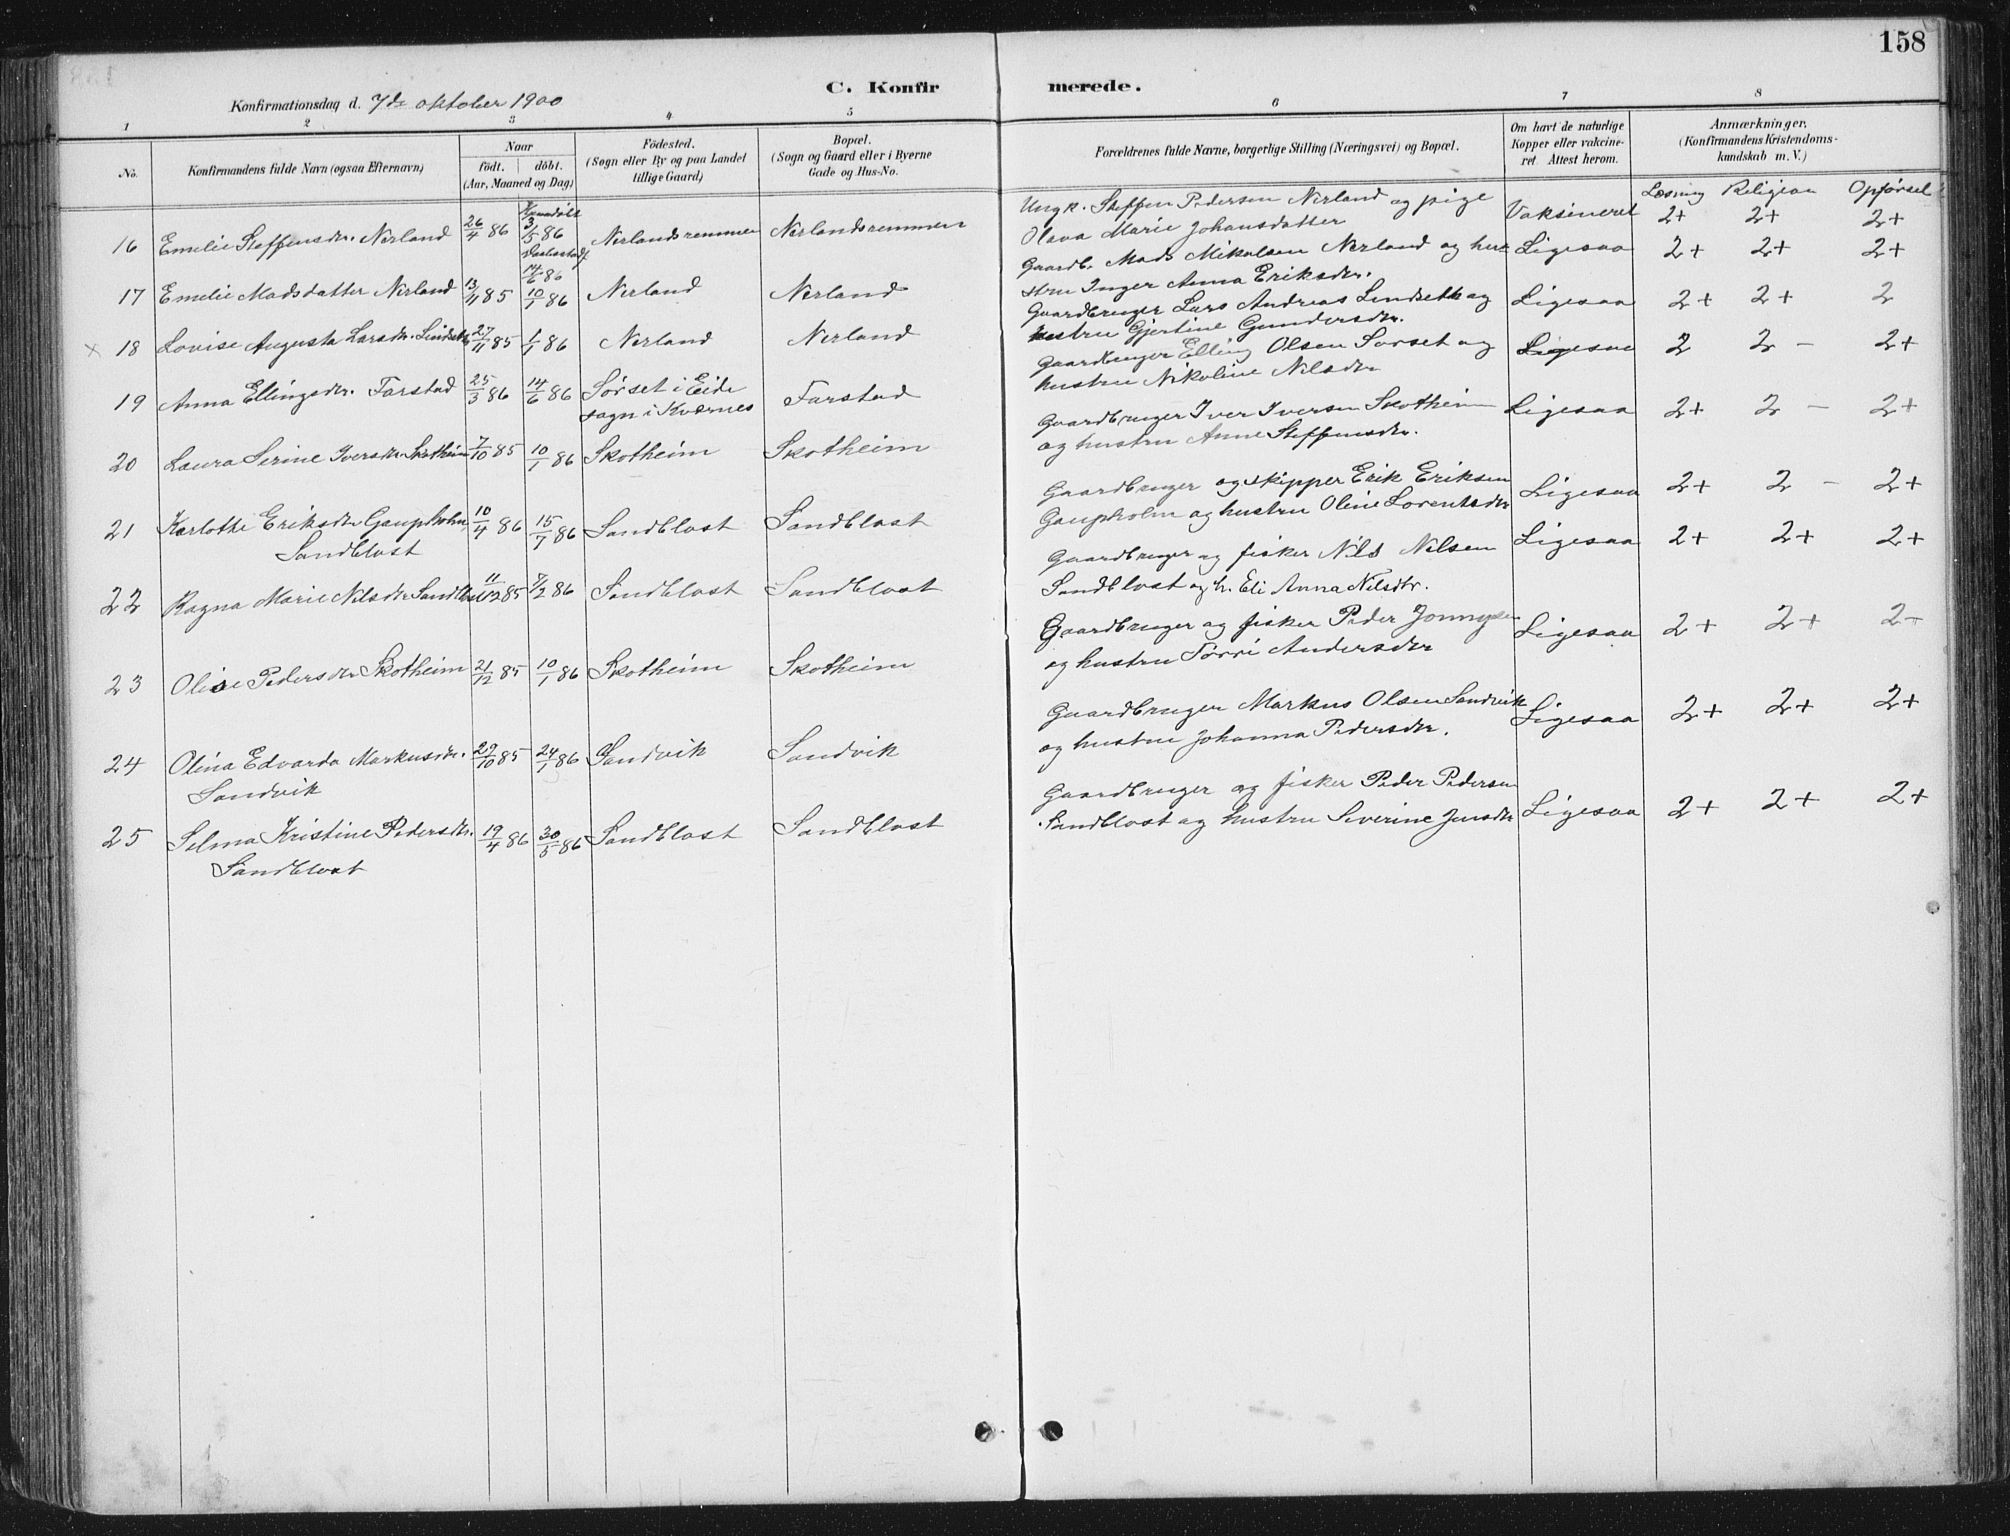 158
C. Konfirmerede.
Konfirmationsdag d. 7de oktober 1900
1 2 3 4 5 6 7 8
No.
Konfirmandens fulde Navn (ogsaa Efternavn)
Naar
födt. döbt.
(Aar, Maaned og Dag)
Födested.
(Sogn eller By og paa Landet
tillige Gaard)
Bopæl.
(Sogn og Gaard eller i Byerne
Gade og Hus-No.
Forældrenes fulde Navne, borgerlige Stilling (Næringsvei) og Bopæl.
Om havt de naturlige
Kopper eller vakcine-
ret. Attest herom.
Anmærkninger.
(Konfirmandens Kristendoms-
kundskab m. V.)
Læsning Religion Opførsel
16 Emelie Steffensdtr. Nerland 26/4 86 Hjemdøbt 3/5 86 14/6 86 Nerlandsremmen Nerlandsremmen
Ungk. Steffen Pedersen Nerland og pige
Olava Marie Johansdatter
Vaksineret 2+ 2+ 2+
17 Emelie Madsdatter Nerland 13/11 85 10/1 86 Nerland Nerland
Gaardb. Mads Mikalsen Nerland og hu-
stru Inger Anna Eriksdtr.
Ligesaa 2+ 2+ 2+
x 18 Lovise Augusta Larsdtr. Lindseth 27/11 85 1/1 86 Nerland Nerland
Gaardbruger Lars Andreas Lindseth og
hustru Gjertine Gundersdtr.
Ligesaa 2+ 2+ 2
19 Anna Ellingsdtr. Farstad 25/3 86 14/6 86 Sørset i Eide
sogn i Kværnes
Farstad
Gaardbruger Elling Olsen Sørset og
hustru Nikoline Nilsdtr
Ligesaa 2 2 - 2+
20 Laura Serine Iversdtr. Skotheim 7/10 85 10/1 86 Skotheim Skotheim
Gaardbruger Iver Iversen Skotheim
og hustru Anne Steffensdtr.
Ligesaa 2+ 2 - 2+
21 Karlotte Eriksdtr Gaupholm
Sandblost
10/4 86 15/7 86 Sandblost Sandblost
Gaardbruger og skipper Erik Eriksen
Gaupholm og hustru Oline Lorentsdtr
Ligesaa 2+ 2 - 2+
22 Ragna Marie Nilsdtr Sandblost 11/12 85 7/2 86 Sandblost Sandblost
Gaardbruger og fisker Nils Nilsen
Sandblost og h. Eli Anna Nilsdtr.
Ligesaa 2+ 2+ 2+
23 Oline Pedersdtr Skotheim 21/12 85 10/1 86 Skotheim Skotheim
Gaardbruger og fisker Peder
og hustru Andersdtr
Ligesaa 2+ 2+ 2+
24 Olina Edvarda Markusdtr.
Sandvik
29/10 85 24/1 86 Sandvik Sandvik
Gaardbruger Markus Olsen Sandvik
og hustru Johanna Pedersdtr.
Ligesaa 2+ 2+ 2+
25 Selma Kristine Pedersdtr.
Sandblost
19/4 86 30/5 86 Sandblost Sandblost
Gaardbruger og fisker Peder Pedersen
Sandblost og hustru Severine Jensdtr
Ligesaa 2+ 2+ 2+